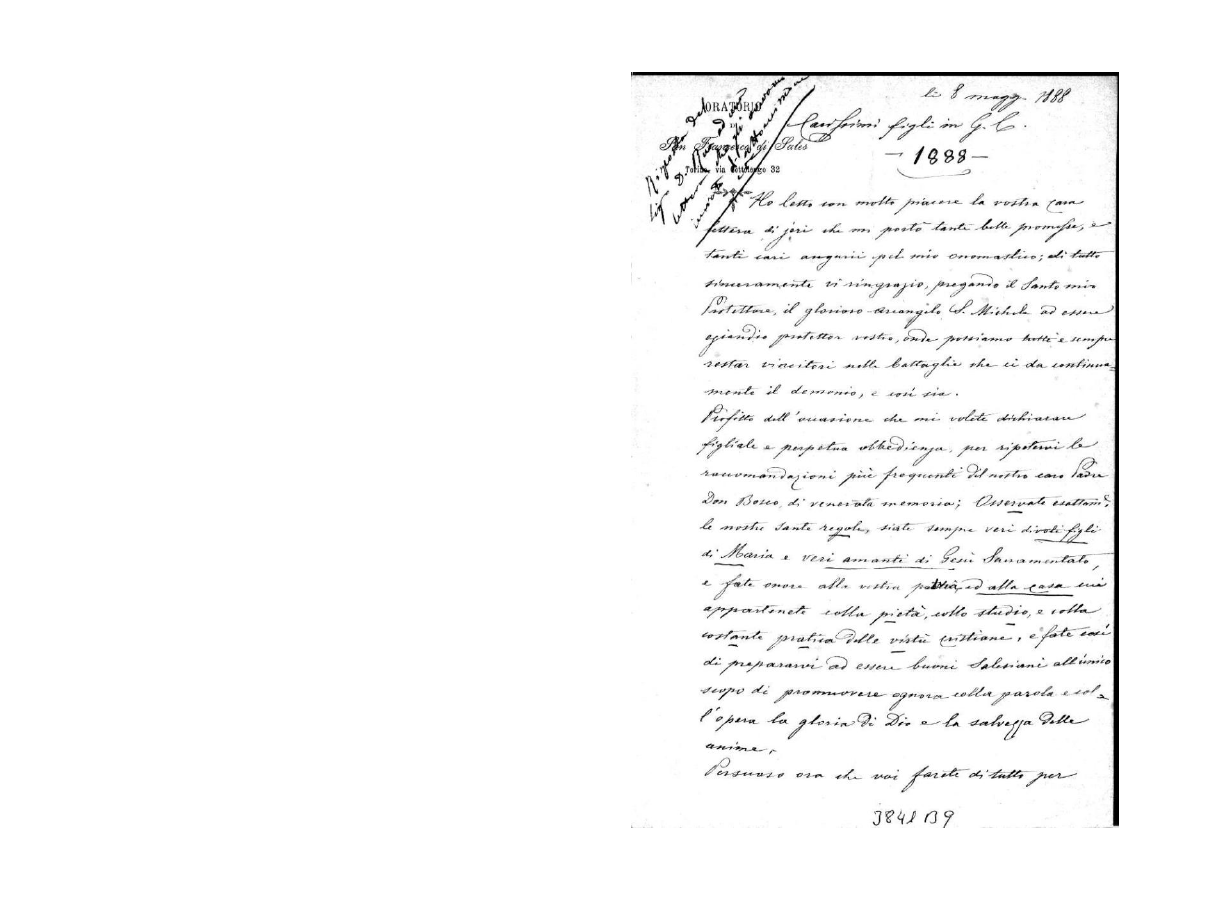 li 8 magg. 1888
ORATORIO
DI
San Francesco di Sales
Torino, via Cottolengo 32
Risposta del
sig. D. Rua ad una
lettera che gli
Carissimi figli in G. C.
— 1888 —
Ho letto con molto piacere la vostra cara
lettera di jeri che mi portò tante belle promesse, e
tanti cari augurii pel mio onomastico; di tutto
sinceramente vi ringrazio, pregando il Santo mio
Protettore, il glorioso Arcangelo S. Michele ad essere
eziandio protettor vostro, onde possiamo tutti e sempre
restar vincitori nelle battaglie che ci da continua=
mente il demonio, e così sia.
Profitto dell'occasione che mi volete dichiarare
figliale e perpetua obbedienza, per ripetervi le
raccomandazioni più frequenti del nostro caro Padre
Don Bosco, di venerata memoria; Osservate esattam.
le nostre sante regole, siate sempre veri divoti figli
di Maria e veri amanti di Gesù Sacramentato,
e fate onore alla vostra patria, ed alla casa cui
appartenete colla pietà, collo studio, e colla
costante pratica delle virtù cristiane, e fate così
di prepararvi ad essere buoni Salesiani all'unico
scopo di promuovere ognora colla parola e col=
l'opera la gloria di Dio e la salvezza delle
anime.
Persuaso ora che voi farete di tutto per
3841 B9